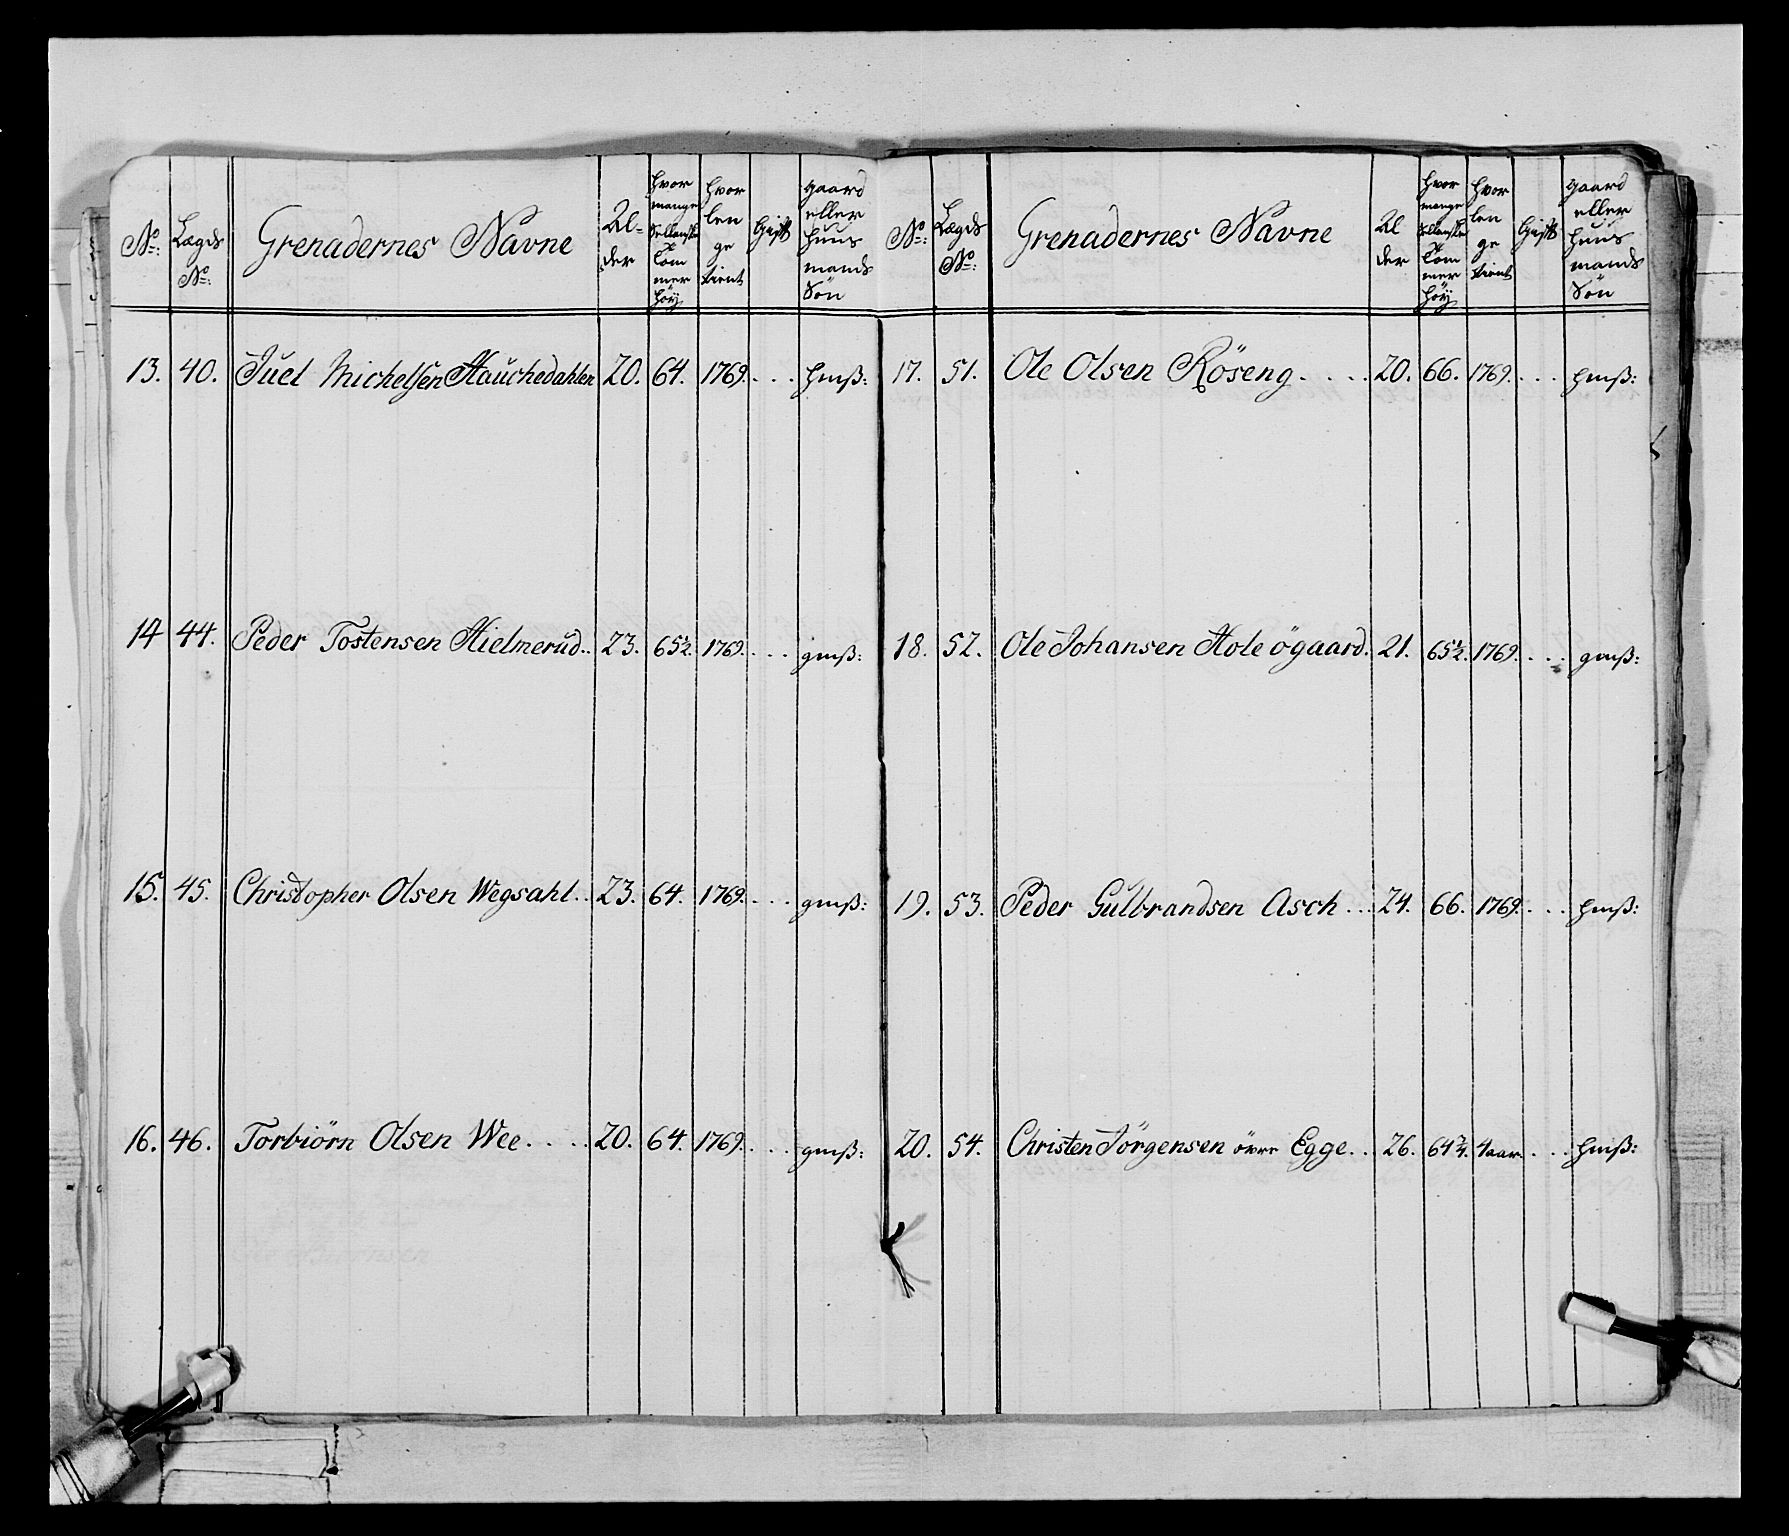 No: Lægds No: Grenadernes Navne Al= der hvor mange Sellanske Tom mer höÿ hvor len ge tient Gift gaard eller huus mands Sön
13. 40. Juel Michelsen Hauchedahlen 20. 64. 1769. . . . hmß:
14 44. Peder Tostensen Hielmerud.. 23. 65½. 1769. . . . gmß:
15. 45. Christopher Olsen Wegsahl.. 23. 64. 1769. . . . gmß:
16. 46. Torbiörn Olsen Wee. . . . 20. 64. 1769. . . . gmß:
No: Lægds No: Grenadernes Navne Al der hvor mange Sellanske Tom mer höÿ hvor len ge tient Gift gaard eller huus mands Sön
17. 51. Ole Olsen Röseng. . . . 20. 66. 1769. . . . hmß:
18. 52. Ole Johansen Hole ögaard. 21. 65½. 1769. . . . gmß:
19. 53. Peder Gulbrandsen Asch ... 24. 66. 1769. . . . hmß:
20. 54. Christen Jörgensen övre Egge. . . 26. 64 4aar. . . . hmß: